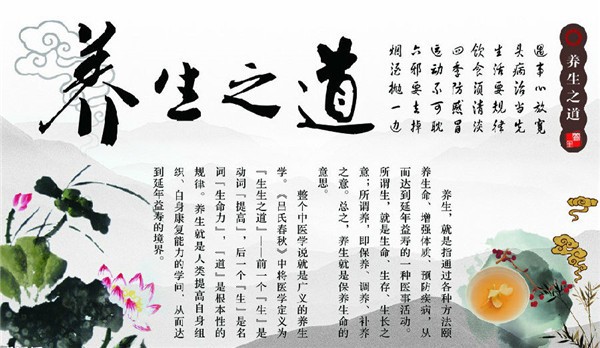 养生之道
养生之道
遇事心放宽
病治当先
生活要规律
饮食须清淡
四季防感冒
运动不可耽
六邪要去掉
烟酒抛一边
养生，就是指通过各种方法颐
养生命、增强体质、预防疾病，从
而达到延年益寿的一种医事活动。
所谓生，就是生命、生存、生长之
意；所谓养，即保养、调养、补养
之意。总之，养生就是保养生命的
意思。
整个中医学说就是广义的养生
学。《吕氏春秋》中将医学定义为
『生生之道』——前一个『生』是
动词『提高』，后一个『生』是名
词『生命力』，『道』是根本性的
规律。养生就是人类提高自身组
织、自身康复能力的学问，从而达
到延年益寿的境界。